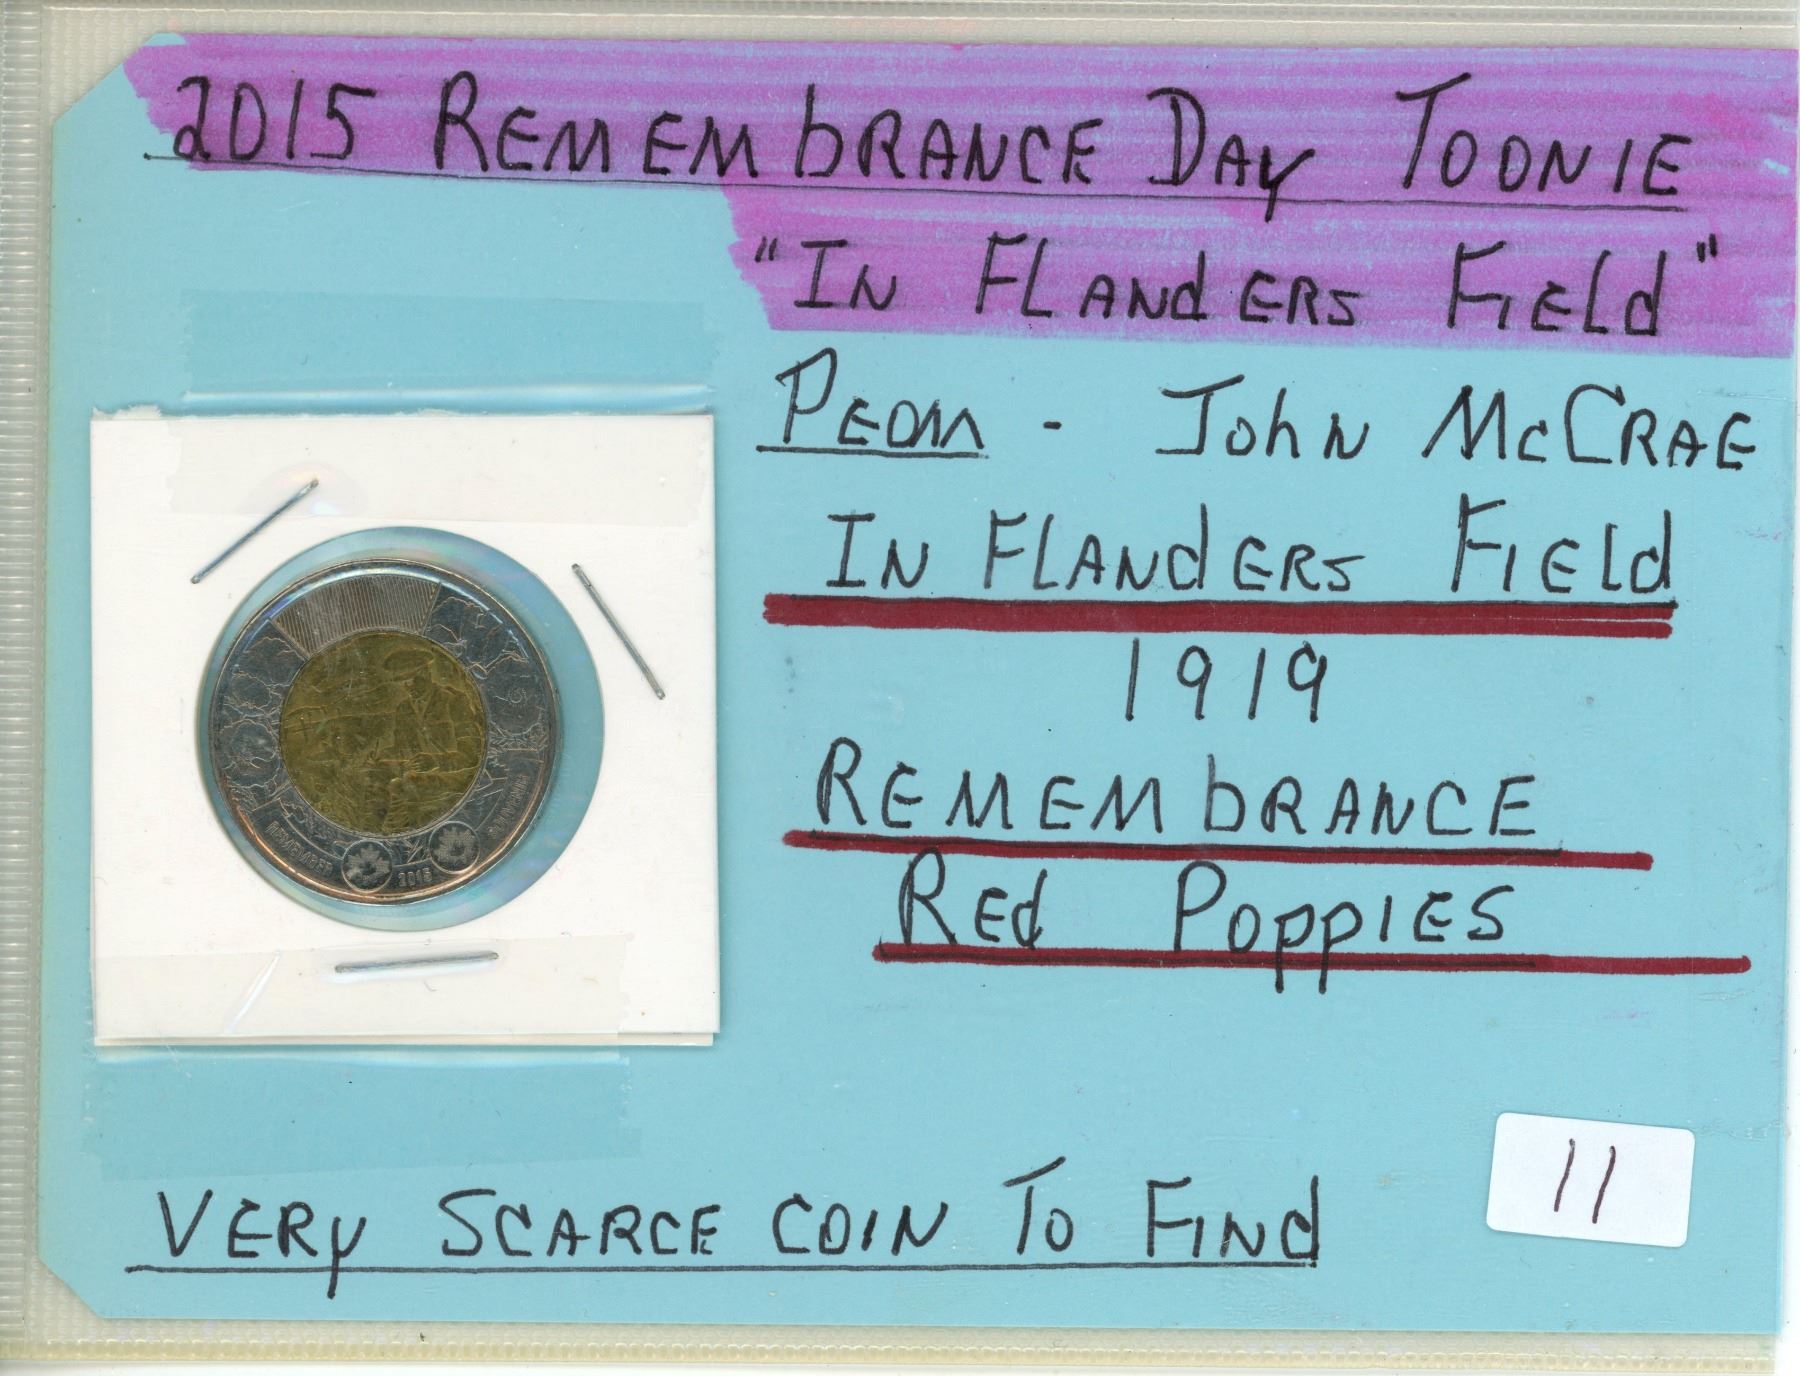 2015 REMEMbRANCE DAY TOONIE
"IN FLANdERS FIELd"
PEOM - JohN McCRAE
IN FLANdERS FIELd
1919
REMEMbRANCE
REd POPPIES
REMEMBER
2015
SOUVENIR
VERY SCARCE COIN TO FINd
11